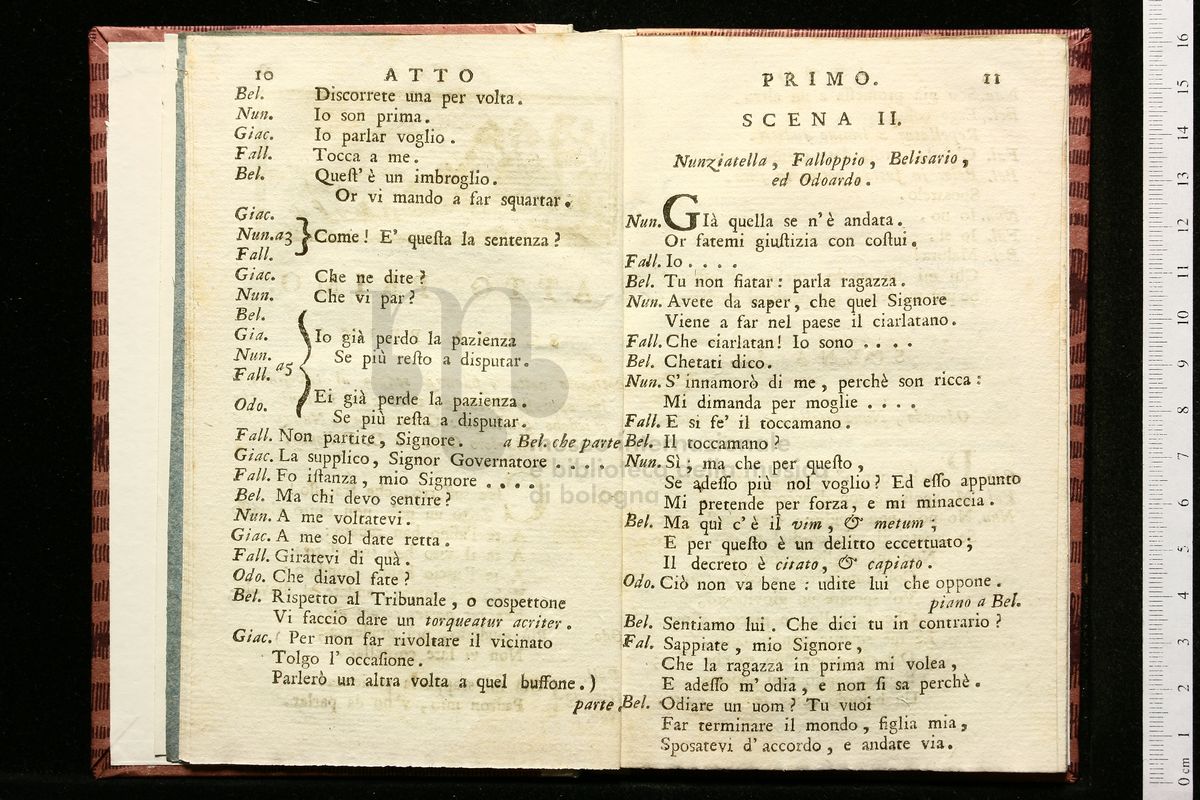 10 ATTO
Bel. Discorrete una per volta.
Nun. Io son prima.
Giac. Io parlar voglio.
Fall. Tocca a me.
Bel. Queſt' è un imbroglio.
Or vi mando a far squartar.
Giac.
Nun. a3 } Come! E' queſta la sentenza?
Fall.
Giac. Che ne dite?
Nun. Che vi par?
Bel.
Gia. Io già perdo la pazienza
Nun. Se più reſto a disputar.
Fall. a5
Odo. Ei già perde la pazienza.
Se più reſta a disputar.
Fall. Non partite, Signore. a Bel. che parte
Giac. La supplico, Signor Governatore ....
Fall. Fo iſtanza, mio Signore ....
Bel. Ma chi devo sentire?
Nun. A me voltatevi.
Giac. A me sol date retta.
Fall. Giratevi di quà.
Odo. Che diavol fate?
Bel. Rispetto al Tribunale, o cospettone
Vi faccio dare un torqueatur acriter.
Giac. ( Per non far rivoltare il vicinato
Tolgo l' occaſione.
Parlerò un altra volta a quel buffone.)
parte.
PRIMO. 11
SCENA II.
Nunziatella, Falloppio, Belisario,
ed Odoardo.
Nun. GIà quella se n' è andata.
Or fatemi giuſtizia con coſtui.
Fall. Io ....
Bel. Tu non fiatar: parla ragazza.
Nun. Avete da saper, che quel Signore
Viene a far nel paese il ciarlatano.
Fall. Che ciarlatan! Io sono ....
Bel. Chetati dico.
Nun. S' innamorò di me, perchè son ricca:
Mi dimanda per moglie ....
Fall. E si fe' il toccamano.
Bel. Il toccamano?
Nun. Sì; ma che per queſto,
Se adeſſo più nol voglio? Ed eſſo appunto
Mi pretende per forza, e mi minaccia.
Bel. Ma quì c' è il vim, & metum;
E per queſto è un delitto eccettuato;
Il decreto è citato, & capiato.
Odo. Ciò non va bene: udite lui che oppone.
piano a Bel.
Bel. Sentiamo lui. Che dici tu in contrario?
Fal. Sappiate, mio Signore,
Che la ragazza in prima mi volea,
E adeſſo m' odia, e non ſi sa perchè.
Bel. Odiare un uom? Tu vuoi
Far terminare il mondo, figlia mia,
Sposatevi d' accordo, e andate via.
museo internazionale
e biblioteca della musica
di bologna
0 cm 1 2 3 4 5 6 7 8 9 10 11 12 13 14 15 16